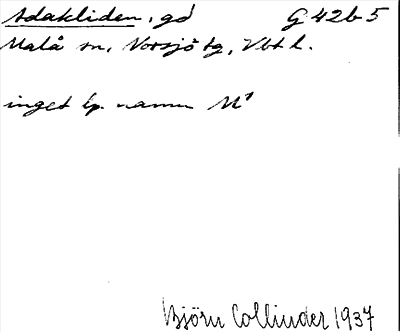 Adakliden, gd G 42b5
Malå sn, Norsjö tg, Vbt l.
inget lp. namn M¹
Björn Collinder 1937